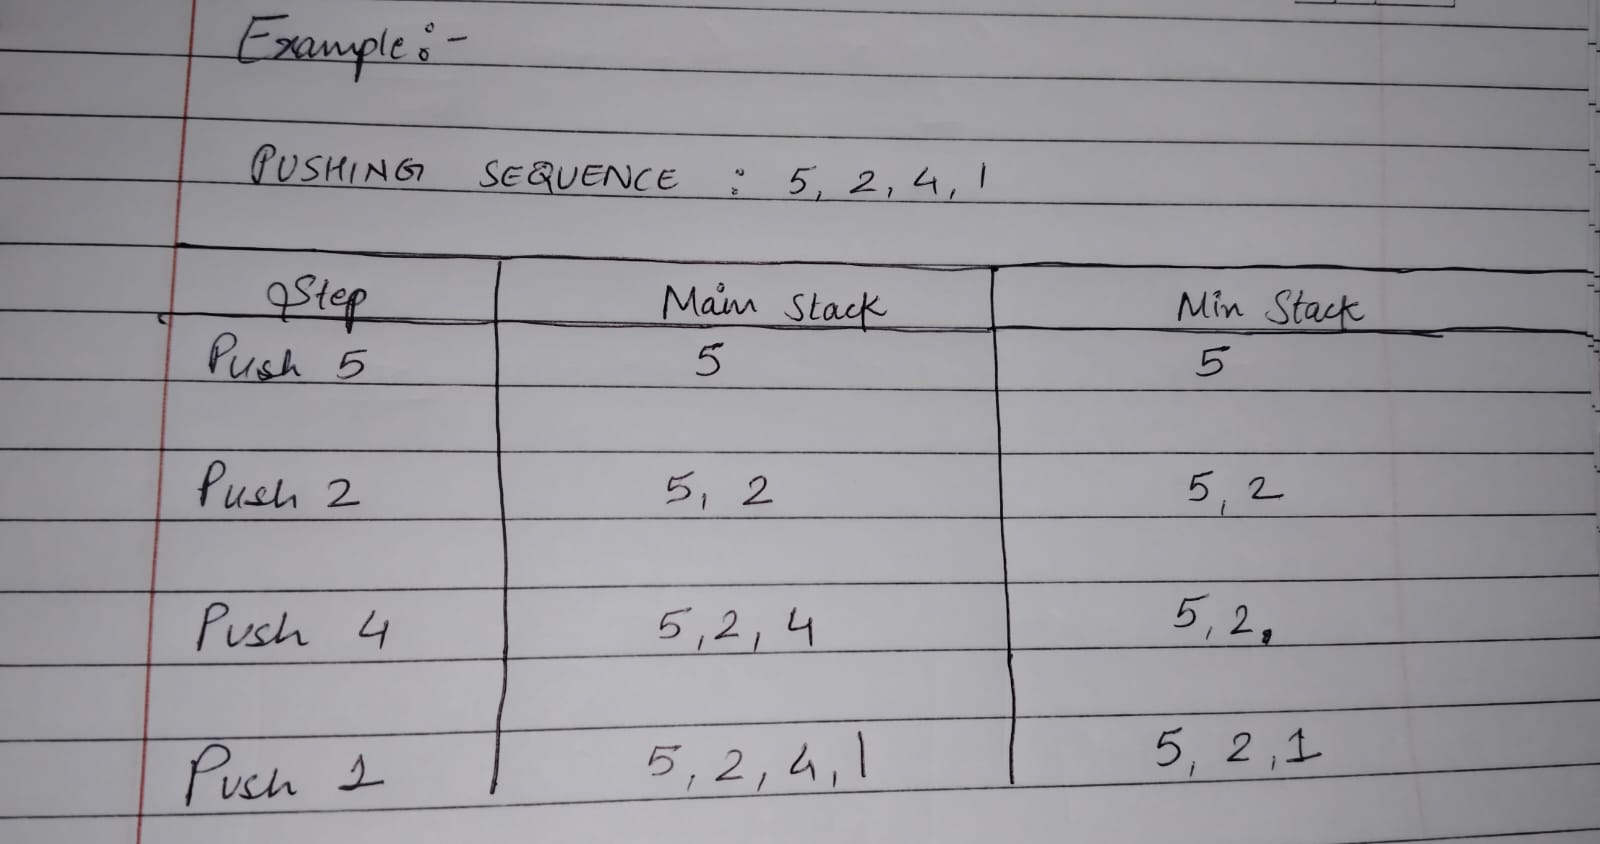 Example :-
PUSHING SEQUENCE : 5, 2, 4, 1
Step Main Stack Min Stack
Push 5 5 5
Push 2 5, 2 5, 2
Push 4 5, 2, 4 5, 2.
Push 1 5, 2, 4, 1 5, 2, 1